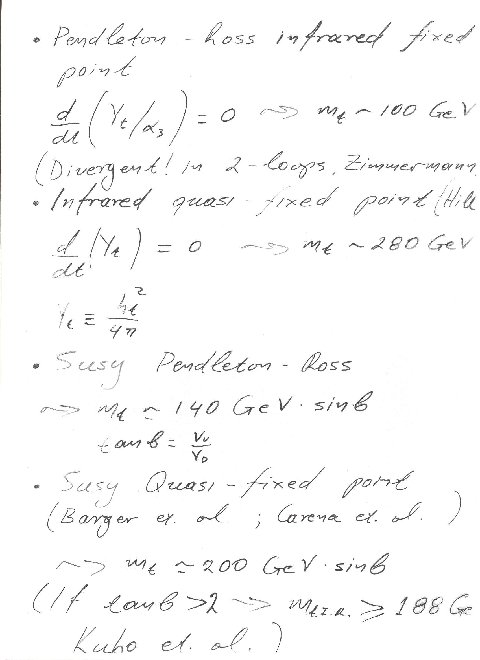 • Pendleton - Ross infrared fixed
point
d/dt (Yt/α3) = 0 ⇝ mt ~ 100 GeV
(Divergent! in 2-loops, Zimmermann
• Infrared quasi-fixed point (Hill
d/dt (Yt) = 0 ⇝ mt ~ 280 GeV
Yt ≡ ht²/4π
• Susy Pendleton - Ross
⇝ mt ≃ 140 GeV · sinb
tanb = vu/vD
• Susy Quasi-fixed point
(Barger et. al ; Carena et. al. )
⇝ mt ≃ 200 GeV · sinb
(If tanb >2 ⇝ mt I.R. ≥ 188 Ge
Kubo et. al. )